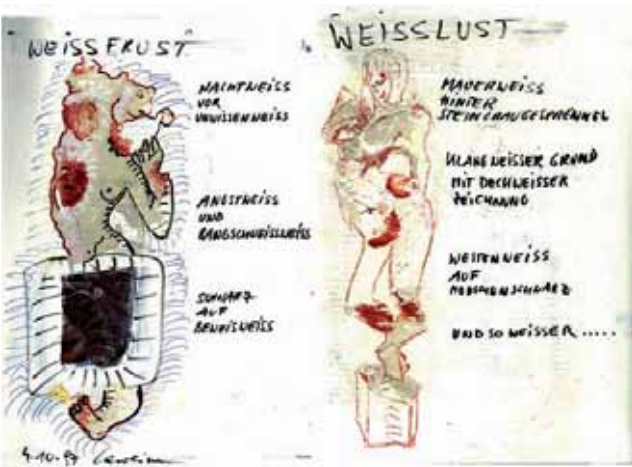 WEISSFRUST
NACHTWEISS
VOR
UNWISSENWEISS
ANGSTWEISS
UND
BANGSCHWEISSWEISS
SCHWARZ
AUF
BEWEISWEISS
4.10.97
WEISSLUST
MAUERWEISS
HINTER
STEINGRAUGESPRENKEL
KLANGWEISSER GRUND
MIT DECKWEISSER
ZEICHNUNG
WESTENWEISS
AUF
UND SO WEISSER .....